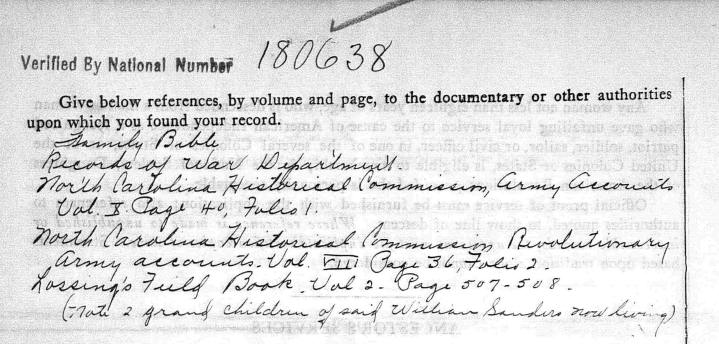 180638
Verified By National Number
Give below references, by volume and page, to the documentary or other authorities
upon which you found your record.
Family Bible
Records of War Department
North Carolina Historical Commission, Army Accounts
Vol. X Page 40, Folio 1.
North Carolina Historical Commission Revolutionary
Army accounts. Vol. VII Page 36, Folio 2.
Lossing's Field Book, Vol 2 - Page 507-508.
(Note 2 grand children of said William Sanders now living)